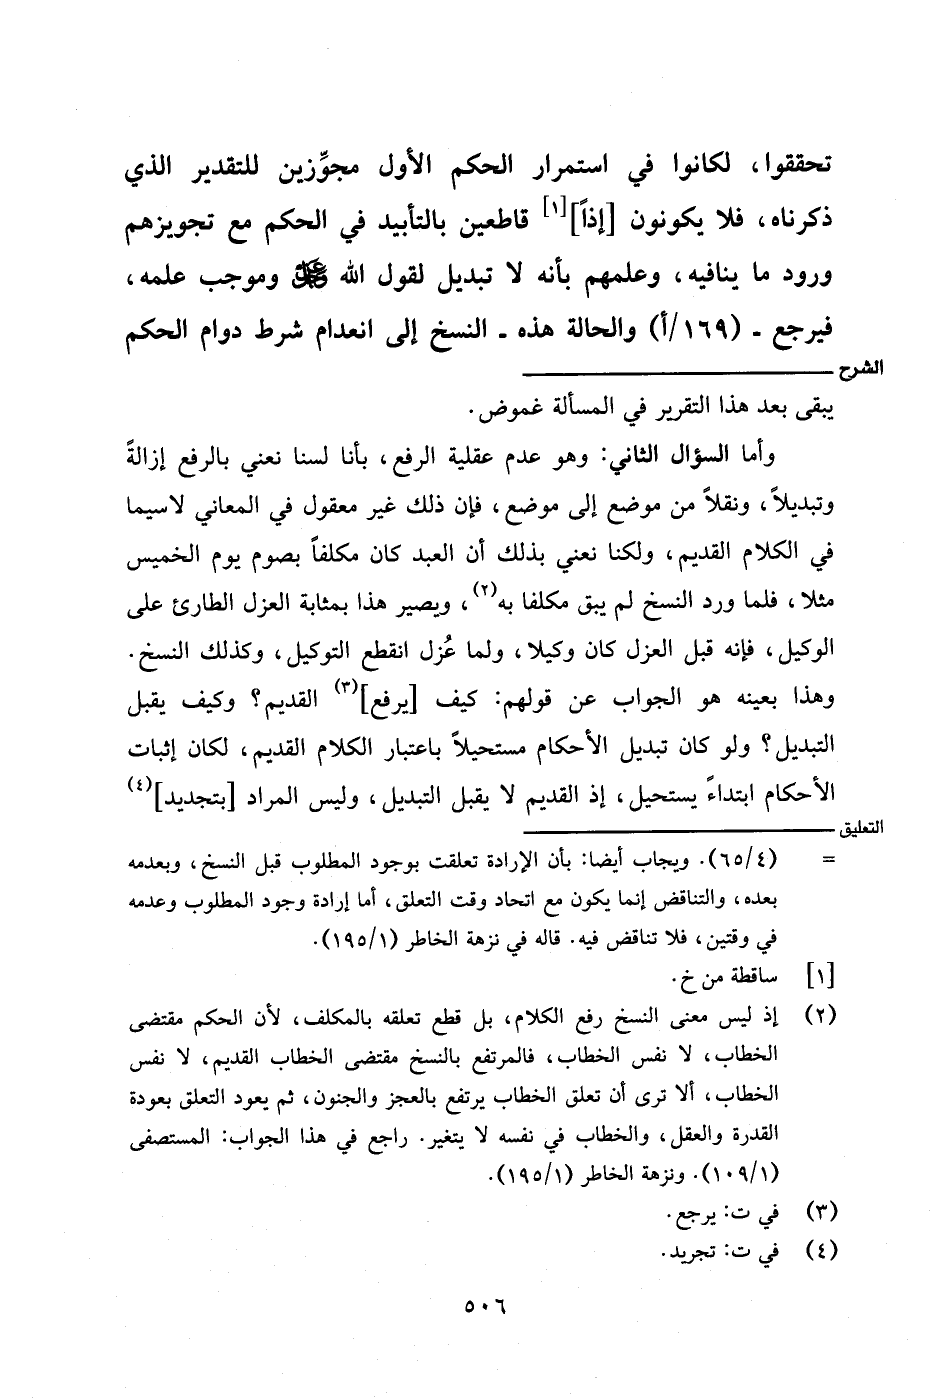 تحققوا، لكانوا في استمرار الحكم الأول مجوِّزين للتقدير الذي
ذكرناه، فلا يكونون [إذاً][١] قاطعين بالتأبيد في الحكم مع تجويزهم
ورود ما ينافيه، وعلمهم بأنه لا تبديل لقول الله ﷻ وموجب علمه،
فيرجع - (١٦٩/أ) والحالة هذه - النسخ إلى انعدام شرط دوام الحكم
الشرح
يبقى بعد هذا التقرير في المسألة غموض.
وأما السؤال الثاني: وهو عدم عقلية الرفع، بأنا لسنا نعني بالرفع إزالةً
وتبديلاً، ونقلاً من موضع إلى موضع، فإن ذلك غير معقول في المعاني لاسيما
في الكلام القديم، ولكنا نعني بذلك أن العبد كان مكلفاً بصوم يوم الخميس
مثلا، فلما ورد النسخ لم يبق مكلفا به(٢)، ويصير هذا بمثابة العزل الطارئ على
الوكيل، فإنه قبل العزل كان وكيلا، ولما عُزل انقطع التوكيل، وكذلك النسخ.
وهذا بعينه هو الجواب عن قولهم: كيف [يرفع](٣) القديم؟ وكيف يقبل
التبديل؟ ولو كان تبديل الأحكام مستحيلاً باعتبار الكلام القديم، لكان إثبات
الأحكام ابتداءً يستحيل، إذ القديم لا يقبل التبديل، وليس المراد [بتجديد](٤)
التعليق
= (٦٥/٤). ويجاب أيضا: بأن الإرادة تعلقت بوجود المطلوب قبل النسخ، وبعدمه
بعده، والتناقض إنما يكون مع اتحاد وقت التعلق، أما إرادة وجود المطلوب وعدمه
في وقتين، فلا تناقض فيه. قاله في نزهة الخاطر (١٩٥/١).
[١] ساقطة من خ.
(٢) إذ ليس معنى النسخ رفع الكلام، بل قطع تعلقه بالمكلف، لأن الحكم مقتضى
الخطاب، لا نفس الخطاب، فالمرتفع بالنسخ مقتضى الخطاب القديم، لا نفس
الخطاب، ألا ترى أن تعلق الخطاب يرتفع بالعجز والجنون، ثم يعود التعلق بعودة
القدرة والعقل، والخطاب في نفسه لا يتغير. راجع في هذا الجواب: المستصفى
(١٠٩/١). ونزهة الخاطر (١٩٥/١).
(٣) في ت: يرجع.
(٤) في ت: تجريد.
٥٠٦